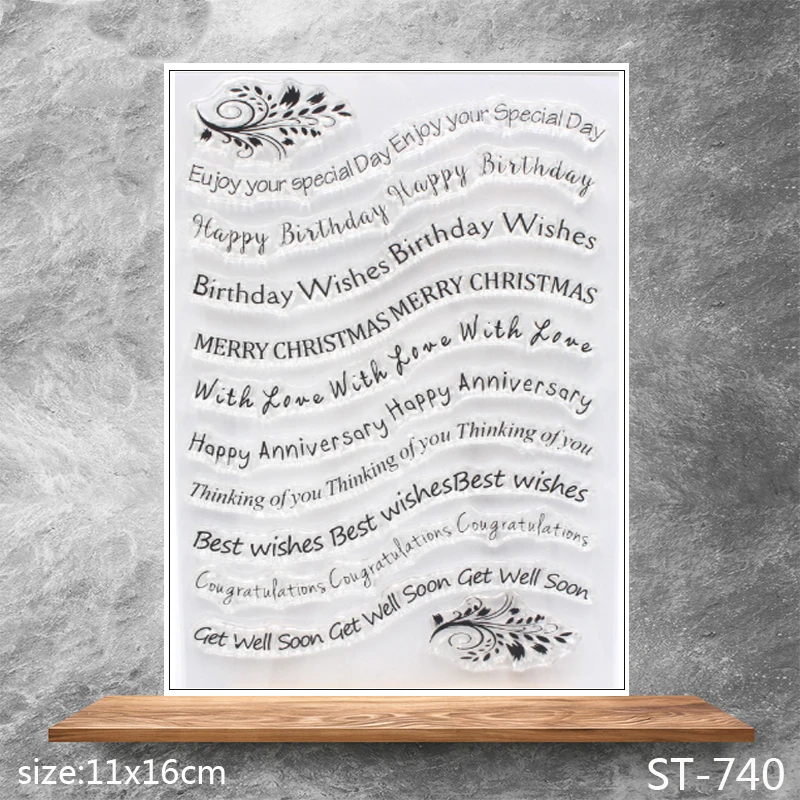 Eujoy your special Day Enjoy your Special Day
Happy Birthday Happy Birthday
Birthday Wishes Birthday Wishes
MERRY CHRISTMAS MERRY CHRISTMAS
With Love With Love With Love
Happy Anniversary Happy Anniversary
Thinking of you Thinking of you Thinking of you
Best wishes Best wishes Best wishes
Cougratulations Cougratulations Cougratulations
Get Well Soon Get Well Soon Get Well Soon
size:11x16cm
ST-740